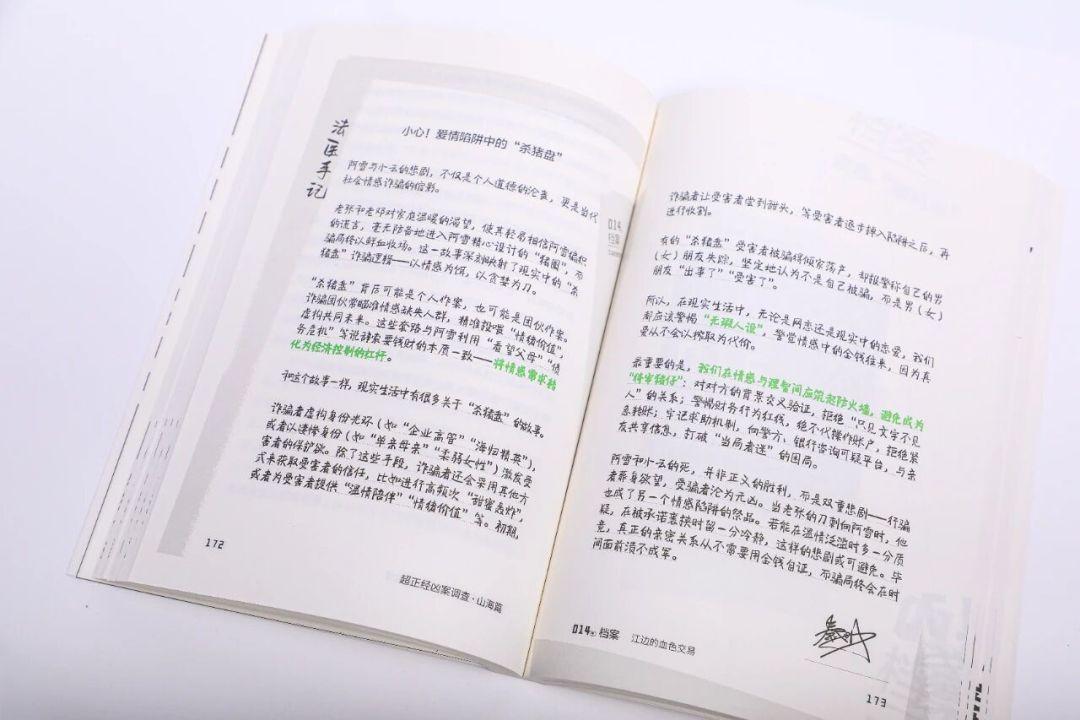 法医手记
小心！爱情陷阱中的“杀猪盘”
阿雪与小云的悲剧，不仅是个人道德的沦丧，更是当代
社会情感诈骗的缩影。
老张和老邓对家庭温暖的渴望，使其轻易相信阿雪编织
的谎言，毫无防备地进入阿雪精心设计的“猪圈”，而
骗局终以鲜血收场。这一故事深刻映射了现实中的“杀
猪盘”诈骗逻辑——以情感为饵，以贪婪为刀。
“杀猪盘”背后可能是个人作案，也可能是团伙作案。
诈骗团伙常瞄准情感缺失人群，精准投喂“情绪价值”，
虚构共同未来。这些套路与阿雪利用“看望父母”“债
务危机”等说辞索要钱财的本质一致——将情感需求转
化为经济控制的杠杆。
和这个故事一样，现实生活中有很多关于“杀猪盘”的故事。
诈骗者虚构身份光环（如“企业高管”“海归精英”），
或者以凄惨身份（如“单亲母亲”“柔弱女性”）激发受
害者的保护欲。除了这些手段，诈骗者还会采用其他方
式来获取受害者的信任，比如进行高频次“甜蜜轰炸”，
或者为受害者提供“温情陪伴”“情绪价值”等。初期，
172
超正经凶案调查·山海篇
诈骗者让受害者尝到甜头，等受害者逐步掉入陷阱之后，再
进行收割。
有的“杀猪盘”受害者被骗得倾家荡产，却报警称自己的男
（女）朋友失踪，坚定地认为不是自己被骗，而是男（女）
朋友“出事了”“受害了”。
所以，在现实生活中，无论是网恋还是现实中的恋爱，我们
都应该警惕“无瑕人设”，警觉情感中的金钱往来，因为真
爱从不会以榨取为代价。
最重要的是，我们在情感与理智间应筑起防火墙，避免成为
“待宰猪仔”：对对方的背景交叉验证，拒绝“只见文字不见
人”的关系；警惕财务行为红线，绝不代操作账户，拒绝紧
急转账；牢记求助机制，向警方、银行咨询可疑平台，与亲
友共享信息，打破“当局者迷”的困局。
阿雪和小云的死，并非正义的胜利，而是双重悲剧——行骗
者葬身欲望，受骗者沦为元凶。当老张的刀刺向阿雪时，他
也成了另一个情感陷阱的祭品。若能在温情泛滥时多一分质
疑，在被承诺裹挟时留一分冷静，这样的悲剧或可避免。毕
竟，真正的亲密关系从不需要用金钱自证，而骗局终会在时
间面前溃不成军。
014号 档案 江边的血色交易
173